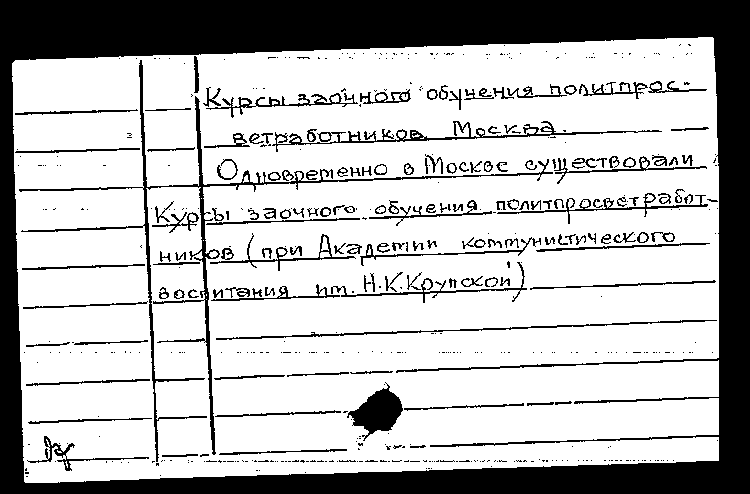 Курсы заочного обучения политпрос-
ветработников. Москва.
Одновременно в Москве существовали
Курсы заочного обучения политпросветработ-
ников (при Академии коммунистического
воспитания им. Н.К.Крупской)